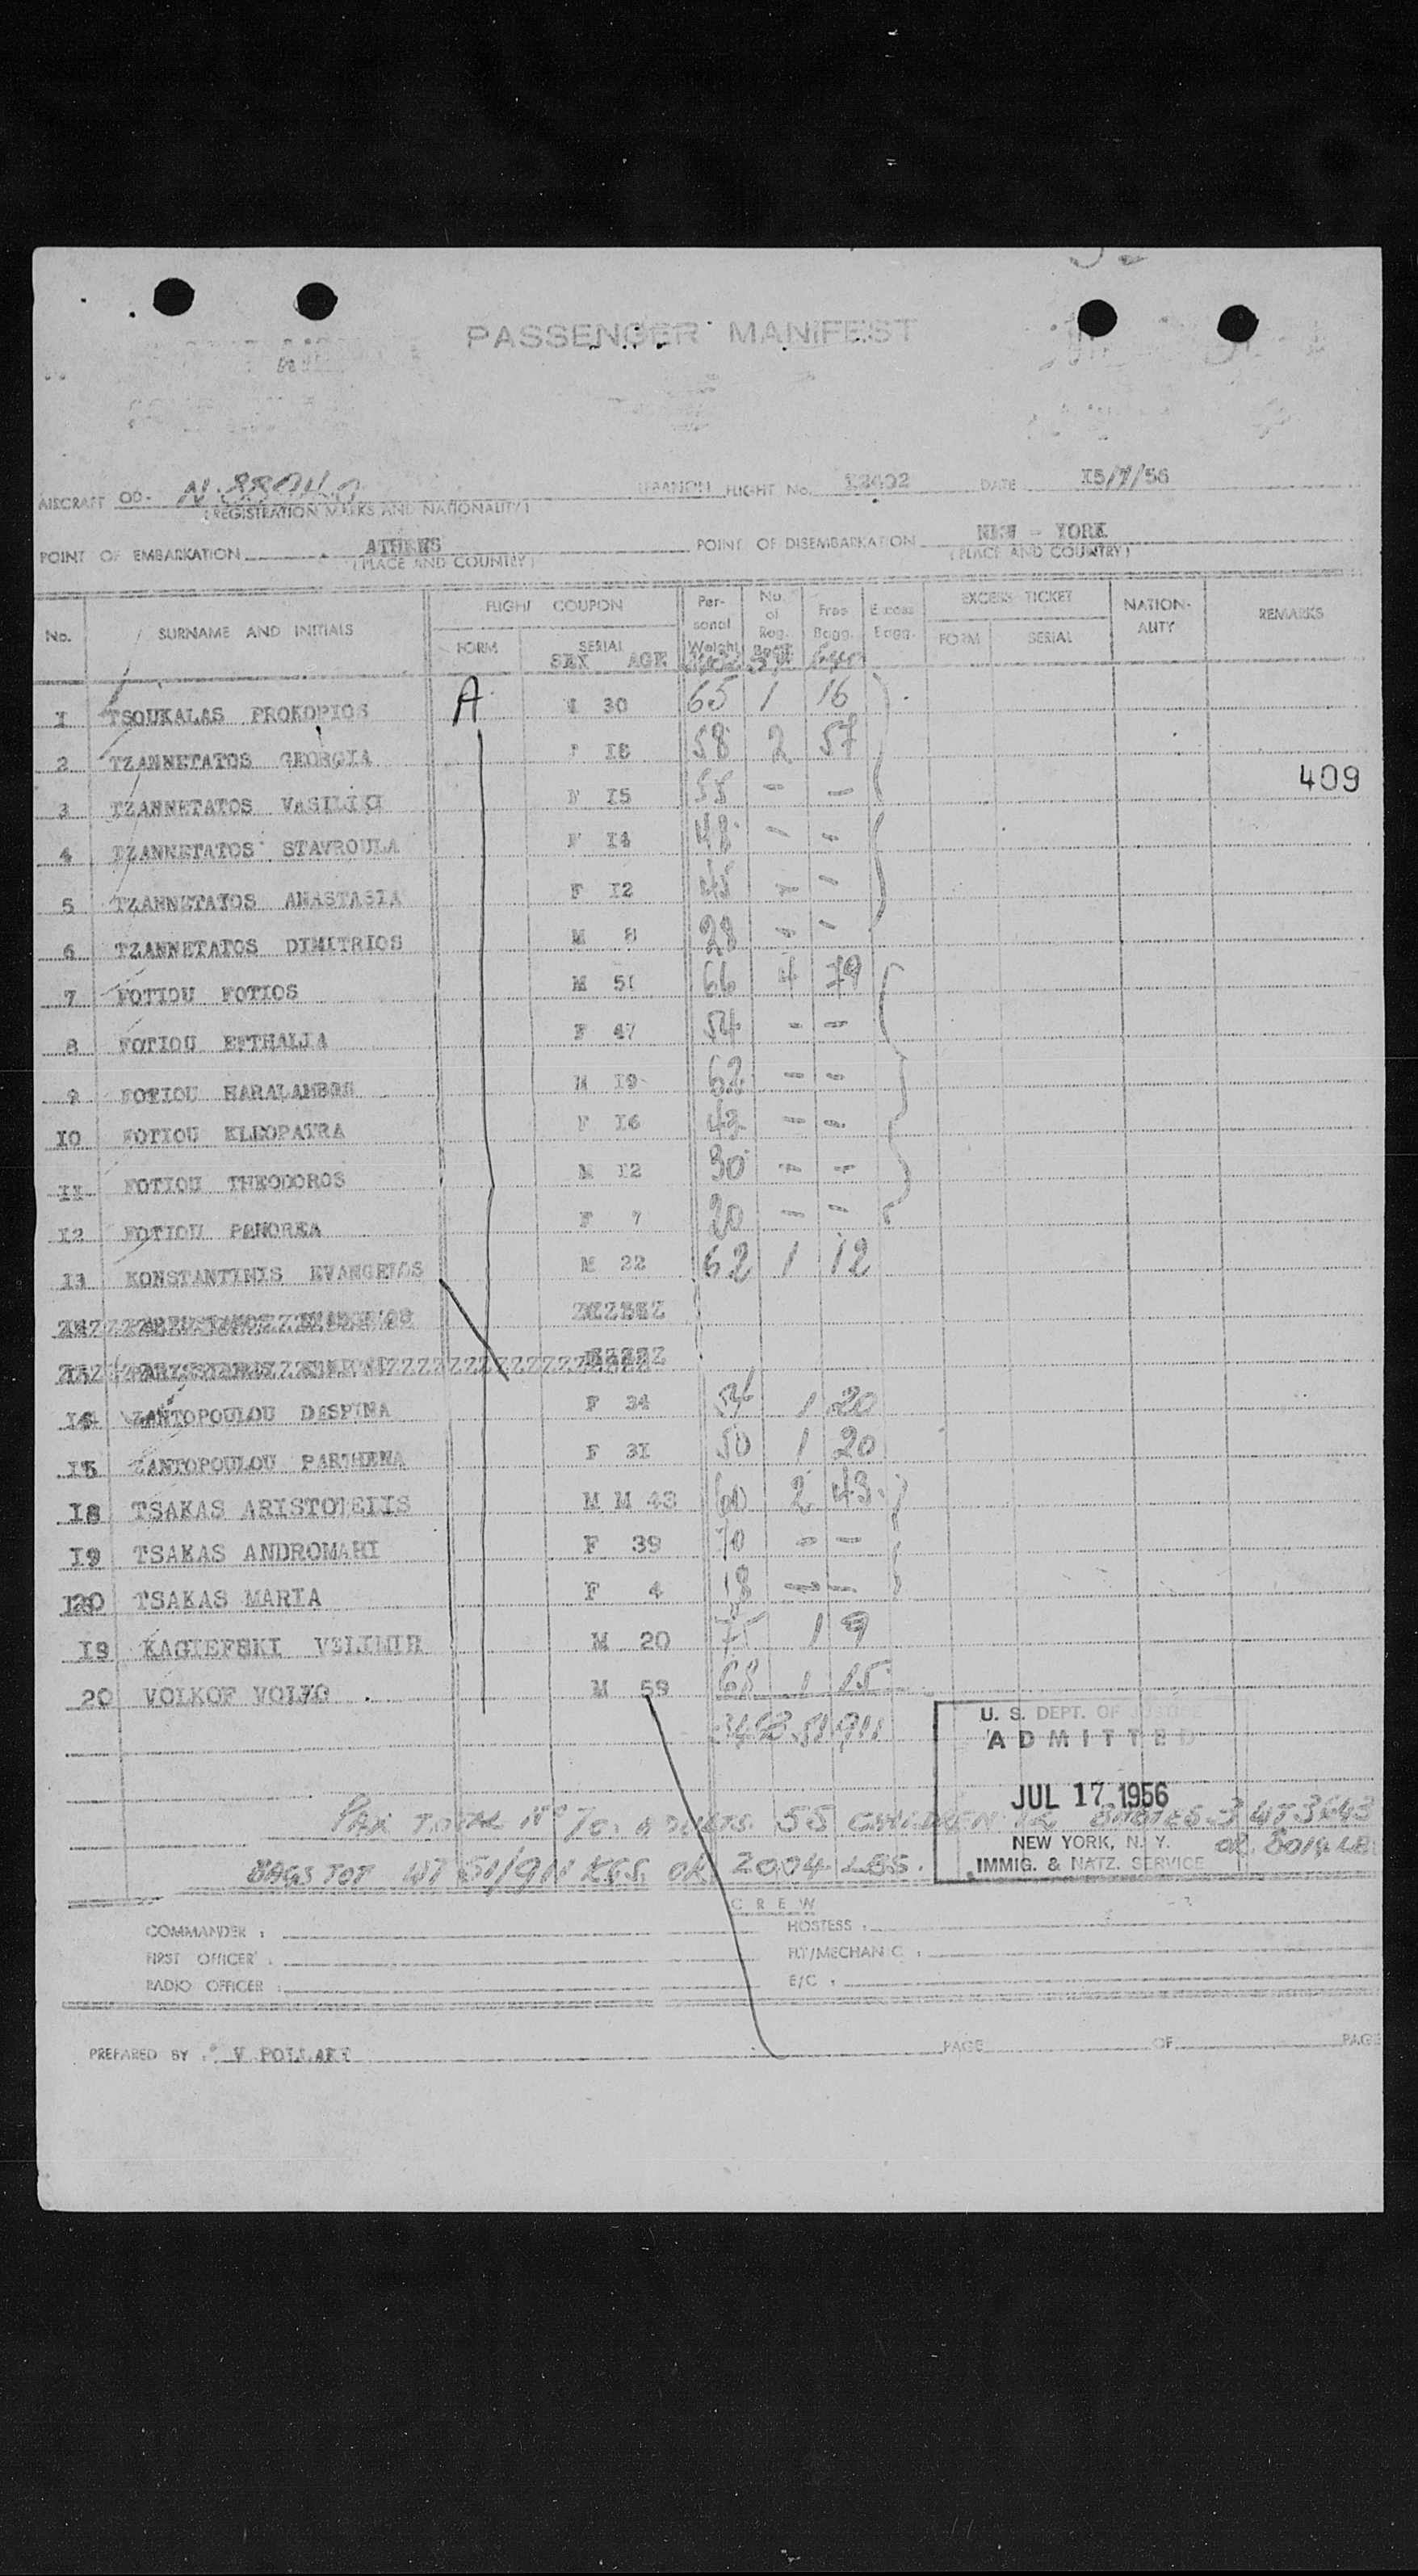 PASSENGER MANIFEST
AIRCRAFT OD- FLIGHT No. DATE 15/7/56
(REGISTRATION MARKS AND NATIONALITY)
POINT OF EMBARKATION ATHENS POINT OF DISEMBARKATION NEW - YORK
(PLACE AND COUNTRY) (PLACE AND COUNTRY)
No. SURNAME AND INITIALS FLIGHT COUPON Per-sonal Weight No. of Reg. Bagg. Free Bagg. Excess Bagg. EXCESS TICKET NATION-ALITY REMARKS
FORM SERIAL FORM SERIAL
SEX AGE
1 TSOUKALAS PROKOPIOS A 30 65 1 16
2 TZANNETATOS GEORGIA 18 58 2 57
409
3 TZANNETATOS F 15 55 - -
4 TZANNETATOS STAVROULA F 14 48 - -
5 TZANNETATOS ANASTASIA F 12 45 - -
6 TZANNETATOS DIMITRIOS M 8 28 - -
7 FOTIOU FOTIOS M 51 66 4 79
8 FOTIOU EFTHALIA F 47 54 - -
9 FOTIOU HARALAMBOS M 19 62 - -
10 FOTIOU KLEOPATRA F 16 43 - -
11 FOTIOU THEODOROS M 12 30 - -
12 FOTIOU PANOREA F 7 20 - -
13 KONSTANTINIS EVANGELOS M 22 62 1 12
14 ZANTOPOULOU DESPINA F 34 54 1 20
15 ZANTOPOULOU PARTHENA F 31 50 1 20
18 TSAKAS ARISTOTELIS M M 43 60 2 43
19 TSAKAS ANDROMAHI F 39 70 - -
20 TSAKAS MARIA F 4 18 - -
19 KAGIEFSKI VELIMIR M 20 75 1 9
20 VOLKOF M 59 68 1 15
51 911
U. S. DEPT. OF JUSTICE
ADMITTED
JUL 17 1956
NEW YORK, N. Y.
IMMIG. & NATZ. SERVICE
PAX TOTAL No 70. ADULTS 55 CHILDREN 12 BABIES 3 WT 3643
OR 8014 LB.
BAGS TOT WT 51/911 KGS. OR 2004 LBS.
CREW
COMMANDER : HOSTESS :
FIRST OFFICER : FLT/MECHANIC :
RADIO OFFICER : E/C :
PREPARED BY : V POLLAKY PAGE OF PAGE